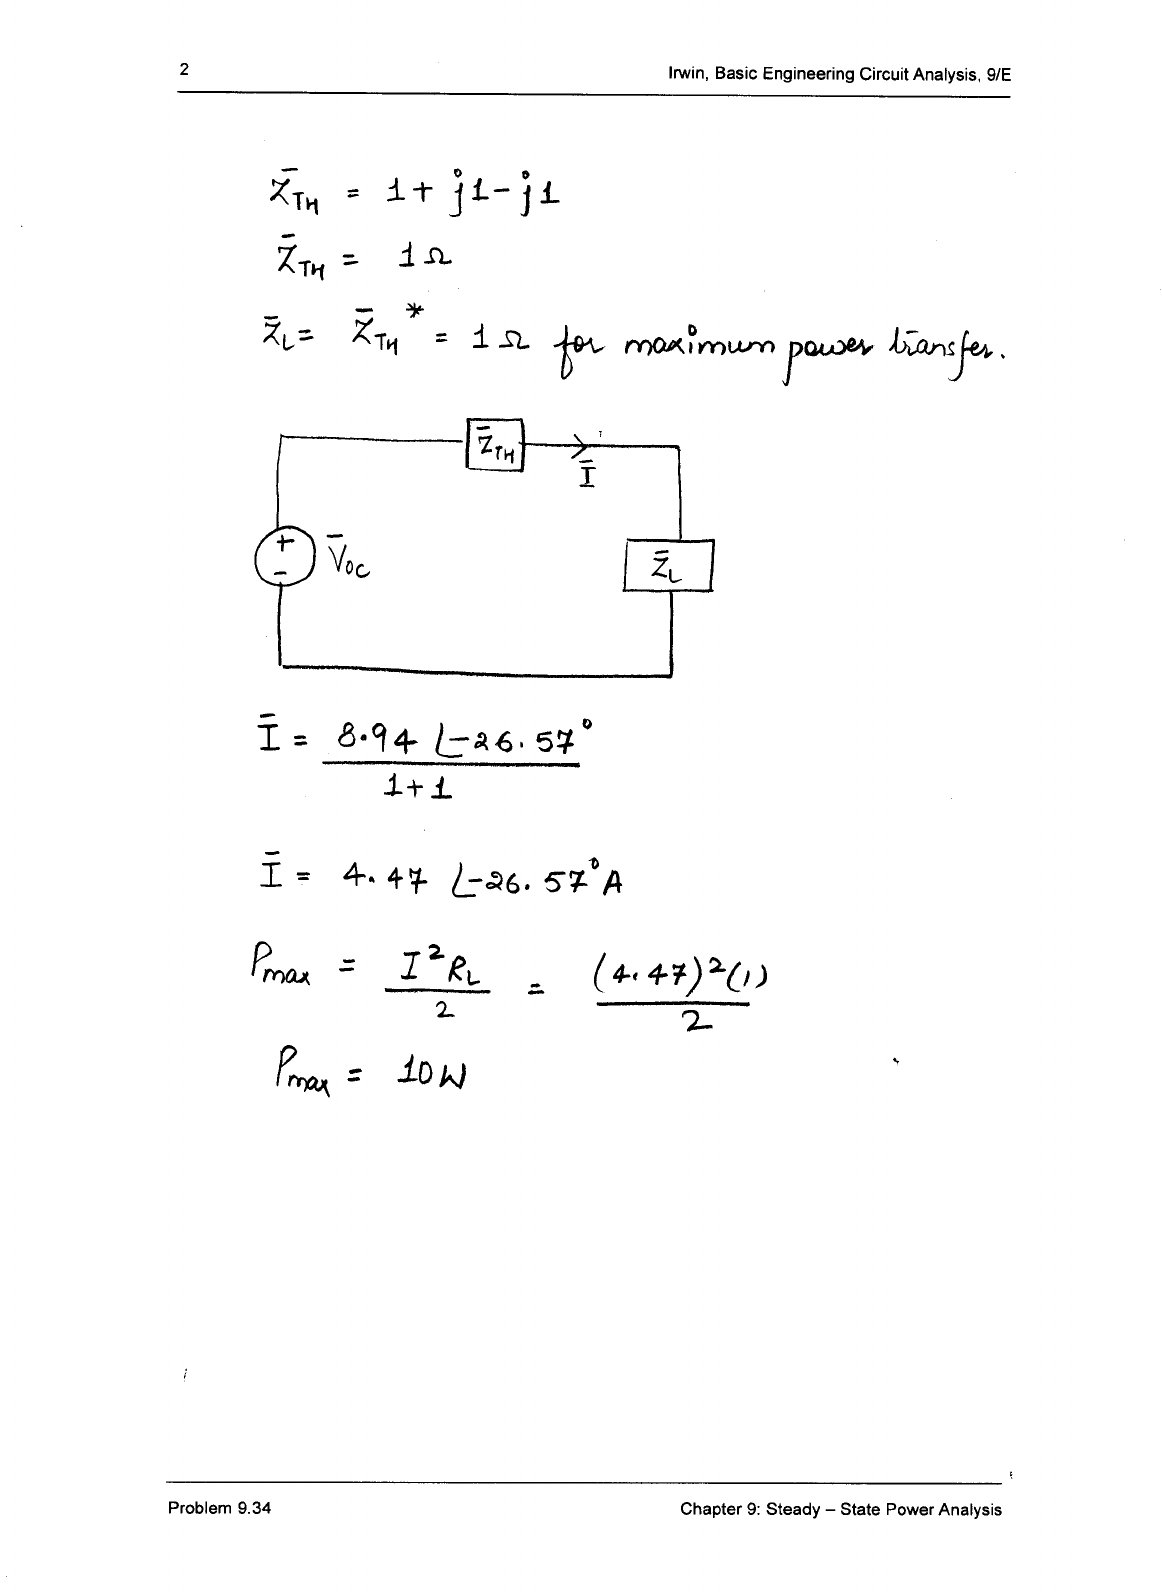 2 Irwin, Basic Engineering Circuit Analysis, 9/E
Z̄TH = 1 + j1 - j1
Z̄TH = 1 Ω
Z̄L = Z̄TH* = 1 Ω for maximum power transfer.
Z̄TH
Ī
+
-
V̄OC
Z̄L
Ī = 8.94 ∠-26.57°
1+1
Ī = 4.47 ∠-26.57° A
Pmax = I²RL / 2 = (4.47)²(1) / 2
Pmax = 10W
Problem 9.34 Chapter 9: Steady – State Power Analysis